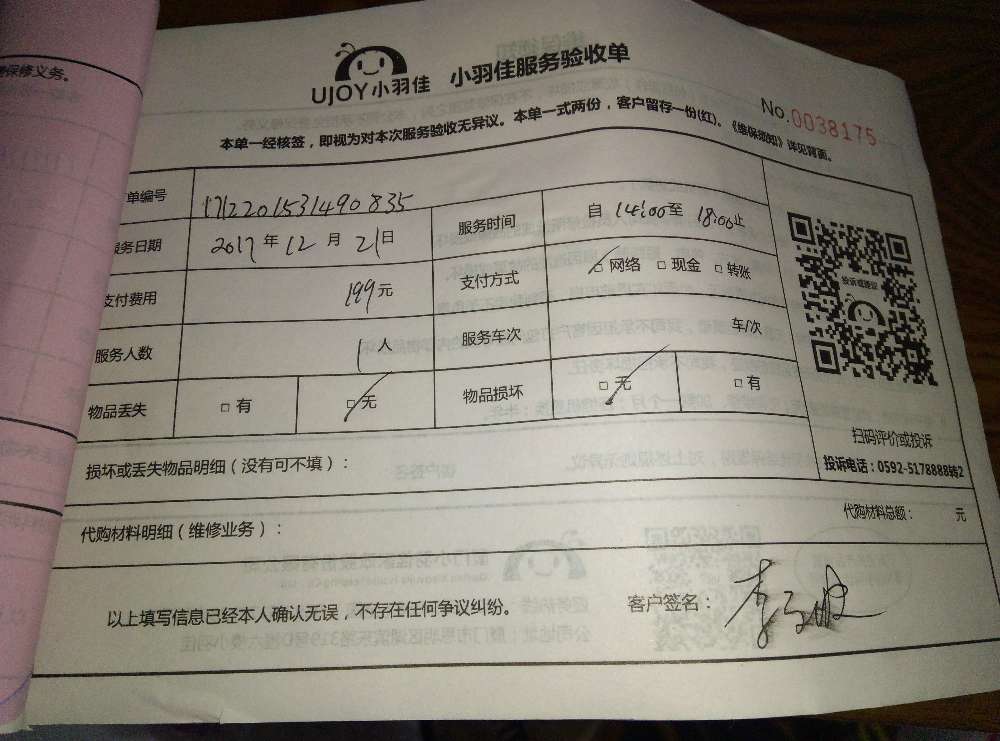 保修义务。
UJOY小羽佳 小羽佳服务验收单
No.0038175
本单一经核签，即视为对本次服务验收无异议。本单一式两份，客户留存一份(红)。《维保须知》详见背面。
单编号 1712201531490835
服务日期 2017年12月21日 服务时间 自14:00至18:00止
支付费用 199元 支付方式 □网络 □现金 □转账
服务人数 1人 服务车次 车/次
物品丢失 □有 □无 物品损坏 □无 □有
投诉或建议
扫码评价或投诉
投诉电话：0592-5178888转2
损坏或丢失物品明细（没有可不填）：
代购材料明细（维修业务）：
代购材料总额： 元
以上填写信息已经本人确认无误，不存在任何争议纠纷。
客户签名：